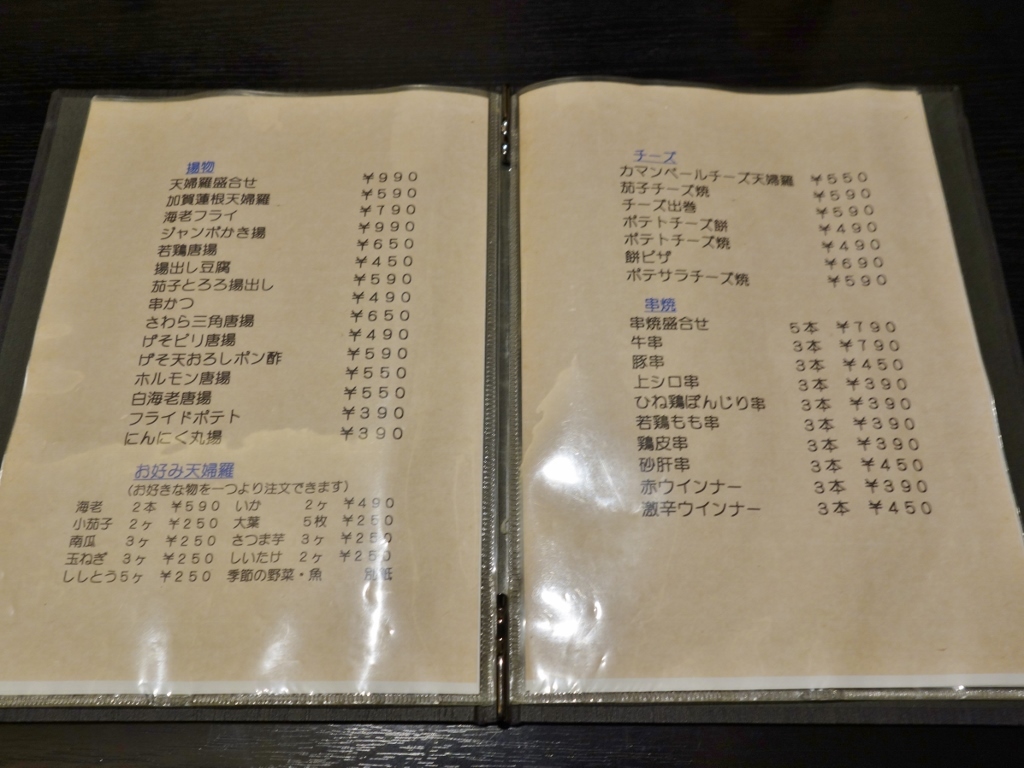 揚物
天婦羅盛合せ ￥990
加賀蓮根天婦羅 ￥590
海老フライ ￥790
ジャンボかき揚 ￥990
若鶏唐揚 ￥650
揚出し豆腐 ￥450
茄子とろろ揚出し ￥590
串かつ ￥490
さわら三角唐揚 ￥650
げそピリ唐揚 ￥490
げそ天おろしポン酢 ￥590
ホルモン唐揚 ￥550
白海老唐揚 ￥550
フライドポテト ￥390
にんにく丸揚 ￥390
お好み天婦羅
(お好きな物を一つより注文できます)
海老 2本 ￥590 いか 2ヶ ￥490
小茄子 2ヶ ￥250 大葉 5枚 ￥250
南瓜 3ヶ ￥250 さつま芋 3ヶ ￥250
玉ねぎ 3ヶ ￥250 しいたけ 2ヶ ￥250
ししとう 5ヶ ￥250 季節の野菜・魚 別紙
チーズ
カマンベールチーズ天婦羅 ￥550
茄子チーズ焼 ￥590
チーズ出巻 ￥590
ポテトチーズ餅 ￥490
ポテトチーズ焼 ￥490
餅ピザ ￥690
ポテサラチーズ焼 ￥590
串焼
串焼盛合せ 5本 ￥790
牛串 3本 ￥790
豚串 3本 ￥450
上シロ串 3本 ￥390
ひね鶏ぽんじり串 3本 ￥390
若鶏もも串 3本 ￥390
鶏皮串 3本 ￥390
砂肝串 3本 ￥450
赤ウインナー 3本 ￥390
激辛ウインナー 3本 ￥450